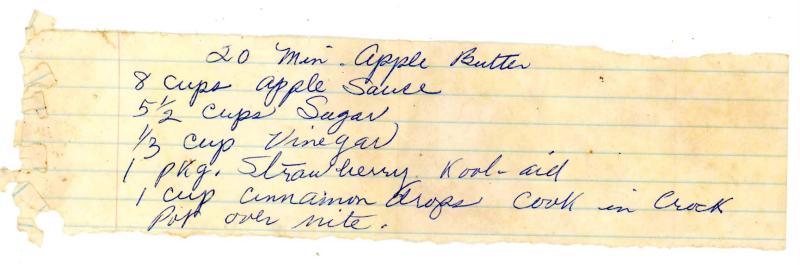 20 Min. Apple Butter
8 cups apple Sauce
5 1/2 cups Sugar
1/3 cup Vinegar
1 pkg. Strawberry Kool-aid
1 cup cinnamon drops cook in Crock
Pot over nite.